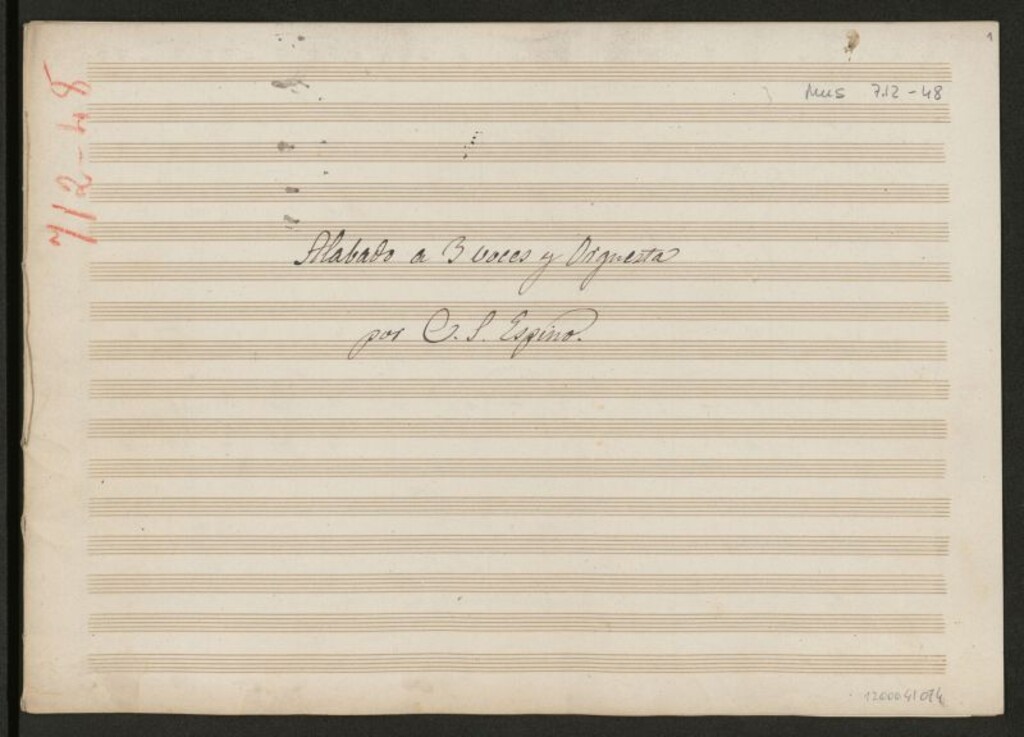 1
Mus 712-48
712-48
Alabado a 3 voces y Orquesta
por C. S. Espino.
1200041094